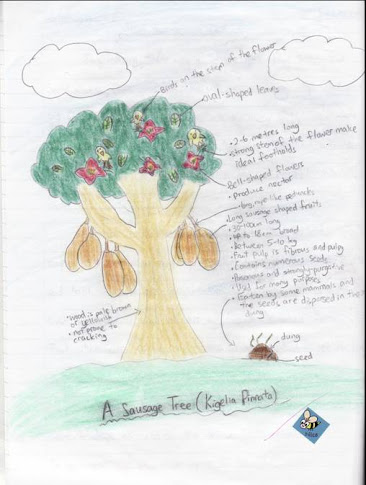 Birds on the stem of the flower
oval-shaped leaves
• 2-6 metres long
• strong stem of the flower make
ideal footholds
• Bell-shaped flowers
• produce nectar
• long, rope-like peduncles
• Long sausage shaped fruits
• 30-100cm long
• up to 18cm broad
• Between 5-10 kg
• Fruit pulp is fibrous and pulpy
• Contains numerous seeds
• Poisonous and strongly-purgative
• Used for many purposes
• Eaten by some mammals and
the seeds are dispersed in their
dung
• Wood is pale brown
or yellowish
• not prone to
cracking
dung
seed
A Sausage Tree (Kigelia Pinnata)